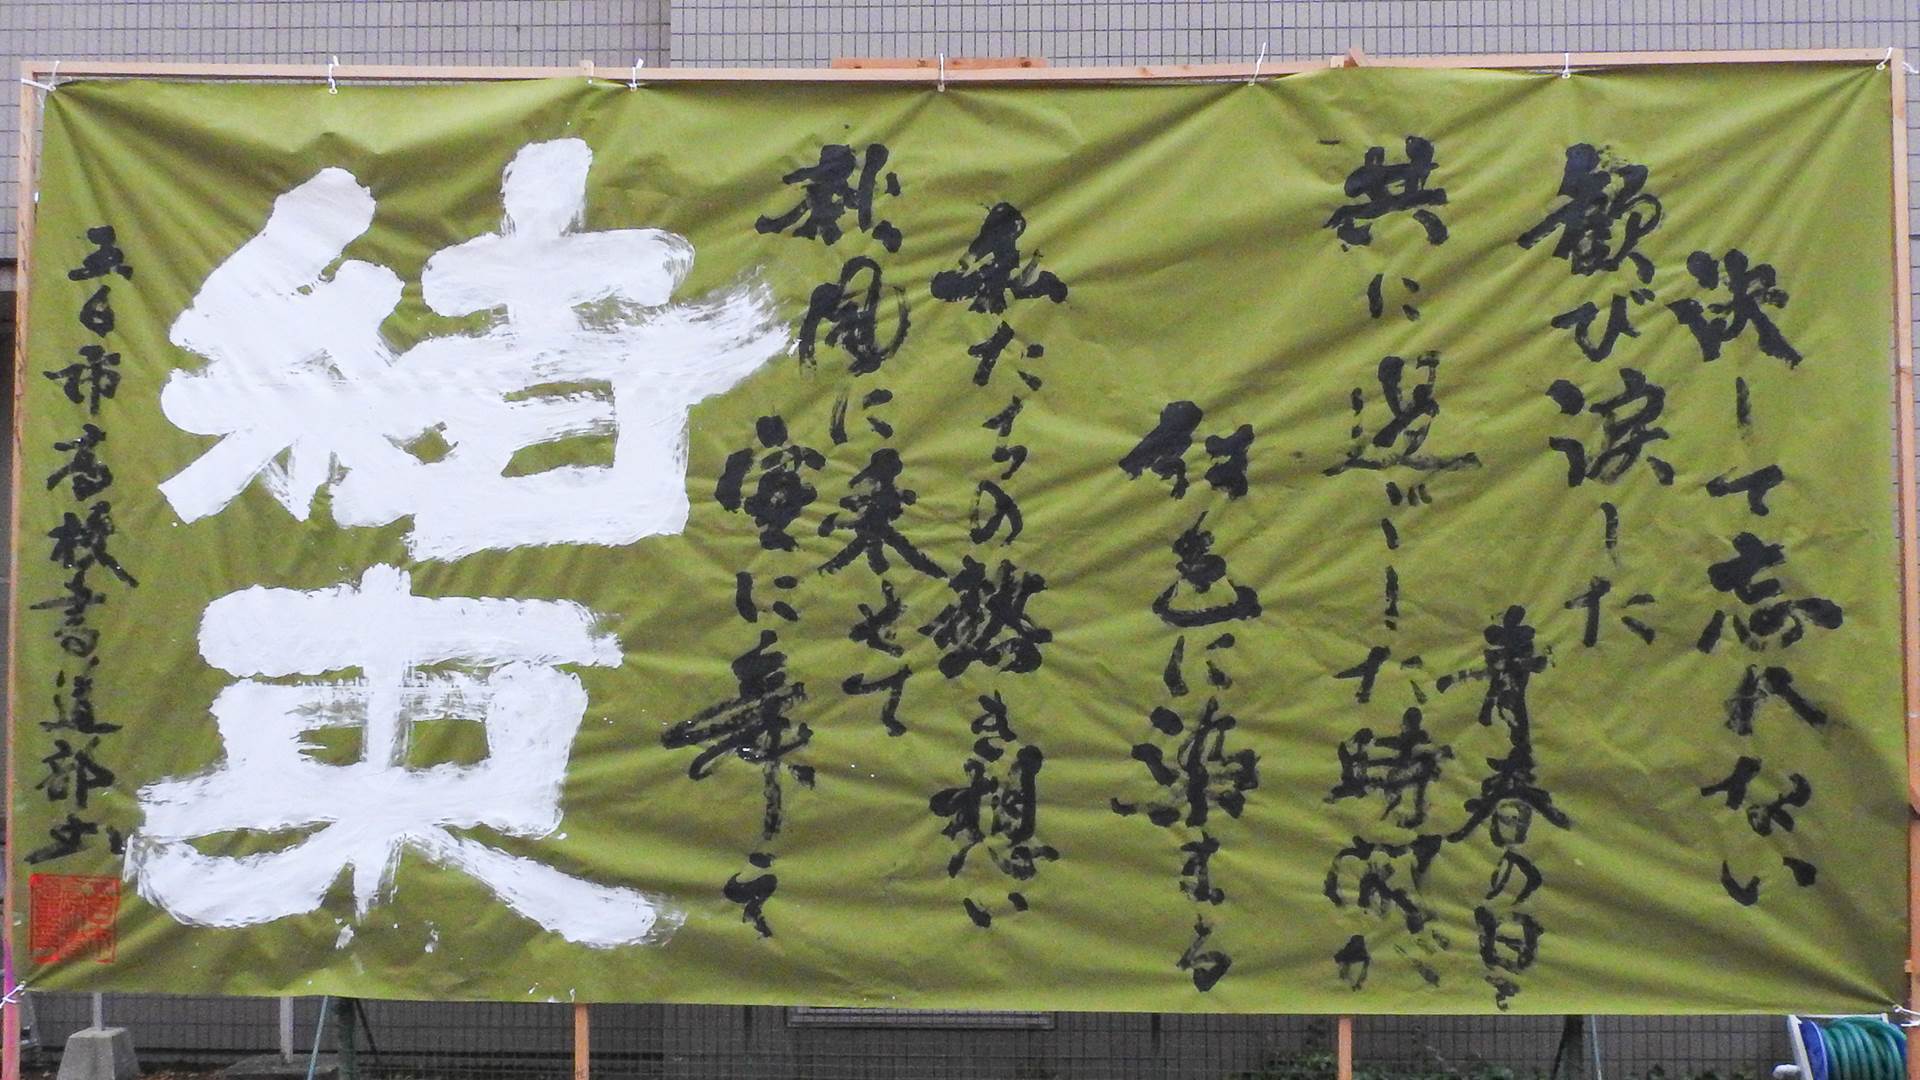 決して忘れない
歓び涙した
青春の日々
共に過ごした時間が
紅色に染まる
私たちの熱き想い
秋風に乗せて
に舞
結
五日市高校書道部書